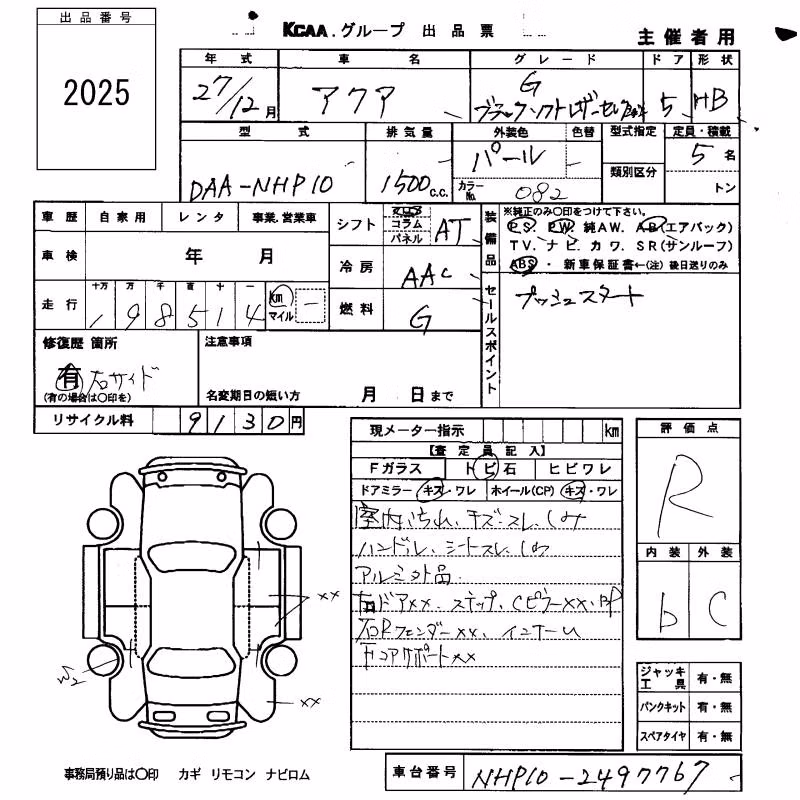 出品番号
2025
KCAA.グループ 出品票
主催者用
年式 車名 グレード ドア 形状
27/12月 アクア G
ブラックソフトレザーセレクション 5 HB
型式 排気量 外装色 色替 型式指定 定員・積載
DAA-NHP10 1500c.c. パール 5名
カラーNo. 082 類別区分 トン
車歴 自家用 レンタ 事業.営業車
シフト フロア コラム パネル AT
車検 年 月
冷房 AAC
走行 十万 万 千 百 十 一
198514 km マイル
燃料 G
装備品
※純正のみ○印をつけて下さい。
PS. PW. 純AW. AB(エアバック)
TV. ナビ. カワ. SR(サンルーフ)
ABS ・ 新車保証書←(注) 後日送りのみ
セールスポイント
プッシュスタート
修復歴 箇所
有 右サイド
(有の場合は○印を)
注意事項
名変期日の短い方 月 日まで
リサイクル料 9130円
現メーター指示 km
【査定員記入】
Fガラス トビ石 ヒビワレ
ドアミラー キズ・ワレ ホイール(CP) キズ・ワレ
室内いちれ、キズ・スレ、しみ
ハンドル、シートスレ、しわ
アルミ外品
右ドアxx、ステップ、Cピラーxx、BP
右Rフェンダーxx、インナーU
Fコアサポートxx
評価点
R
内装 外装
b C
xx
W2
xx
ジャッキ工具 有・無
パンクキット 有・無
スペアタイヤ 有・無
事務局預り品は○印 カギ リモコン ナビロム
車台番号 NHP10-2497767